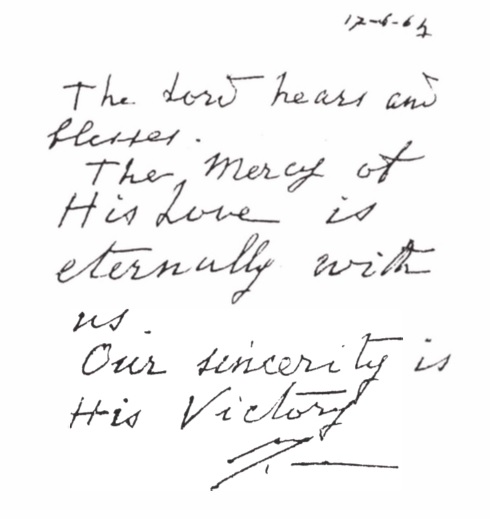 The Lord hears and
blesses.
The Mercy of
His Love is
eternally with
us.
Our sincerity is
His Victory